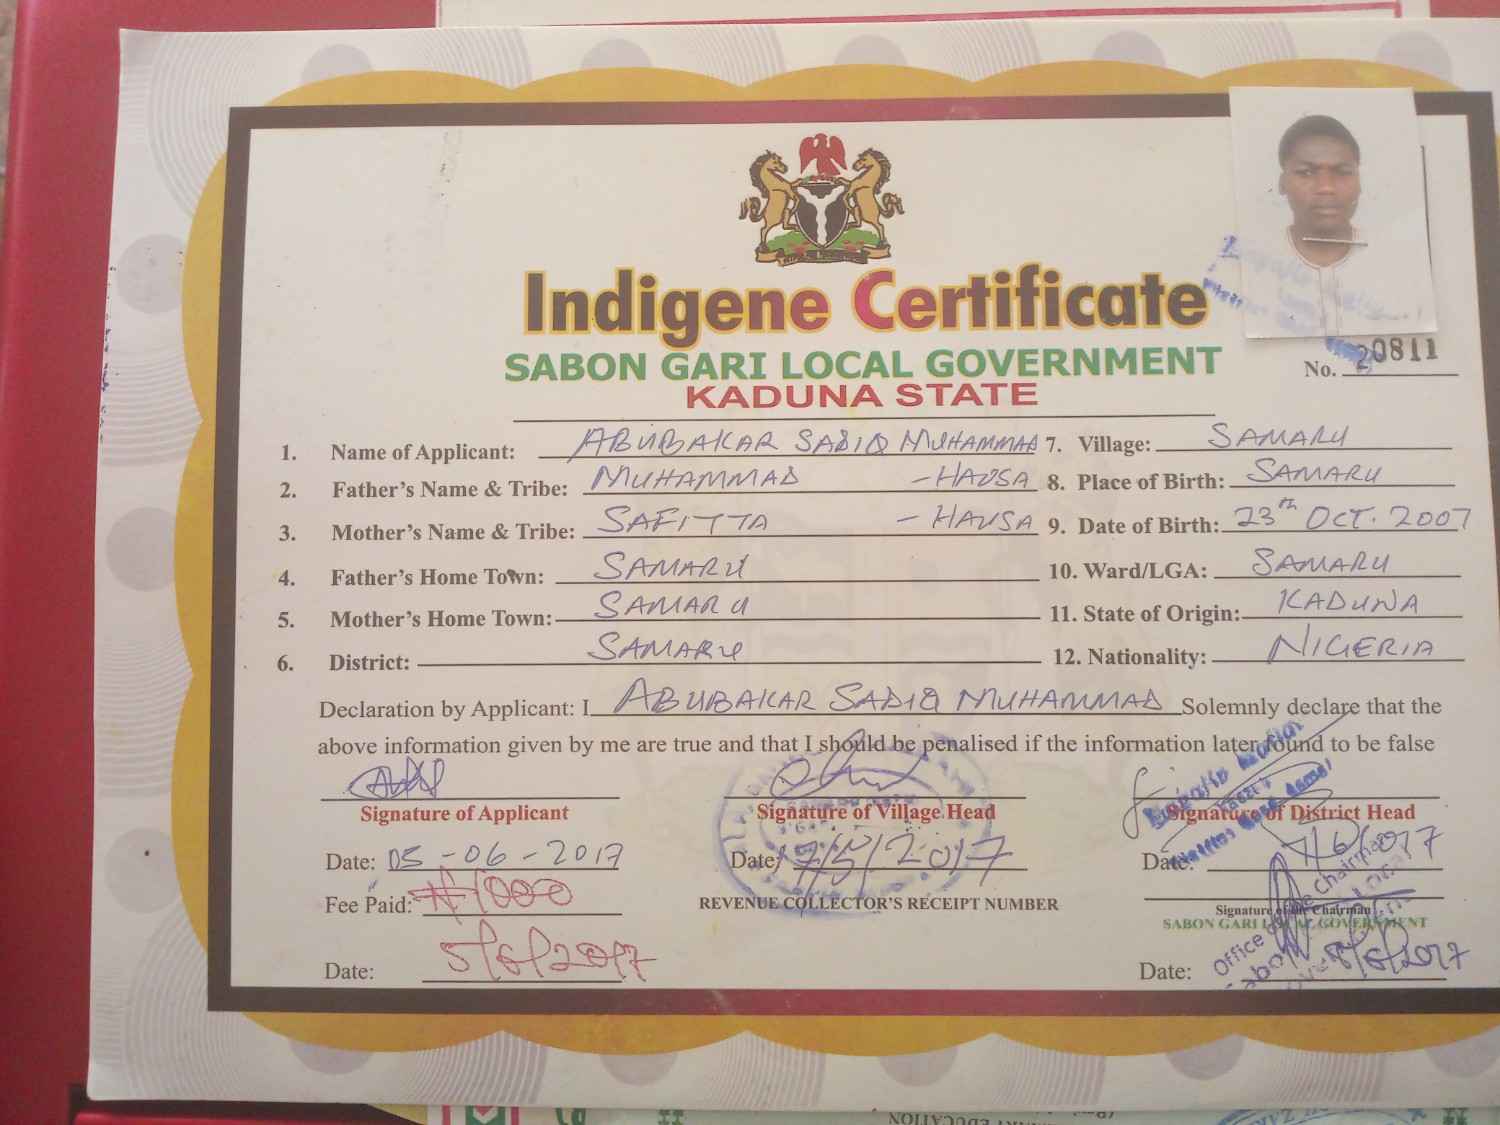 Indigene Certificate
SABON GARI LOCAL GOVERNMENT
KADUNA STATE
No. 20811
1. Name of Applicant: ABUBAKAR SADIQ MUHAMMAD
2. Father's Name & Tribe: MUHAMMAD - HAUSA
3. Mother's Name & Tribe: SAFITTA - HAUSA
4. Father's Home Town: SAMARU
5. Mother's Home Town: SAMARU
6. District: SAMARU
7. Village: SAMARU
8. Place of Birth: SAMARU
9. Date of Birth: 23th OCT. 2007
10. Ward/LGA: SAMARU
11. State of Origin: KADUNA
12. Nationality: NIGERIA
Declaration by Applicant: I ABUBAKAR SADIQ MUHAMMAD Solemnly declare that the
above information given by me are true and that I should be penalised if the information later found to be false
Signature of Applicant
Date: 05-06-2017
Fee Paid: ₦1000
Date: 5/6/2017
Signature of Village Head
Date: 7/5/2017
REVENUE COLLECTOR'S RECEIPT NUMBER
Signature of District Head
Date: 7/6/2017
Signature of the Chairman
SABON GARI LOCAL GOVERNMENT
Office of the Chairman
Date: 8/6/2017